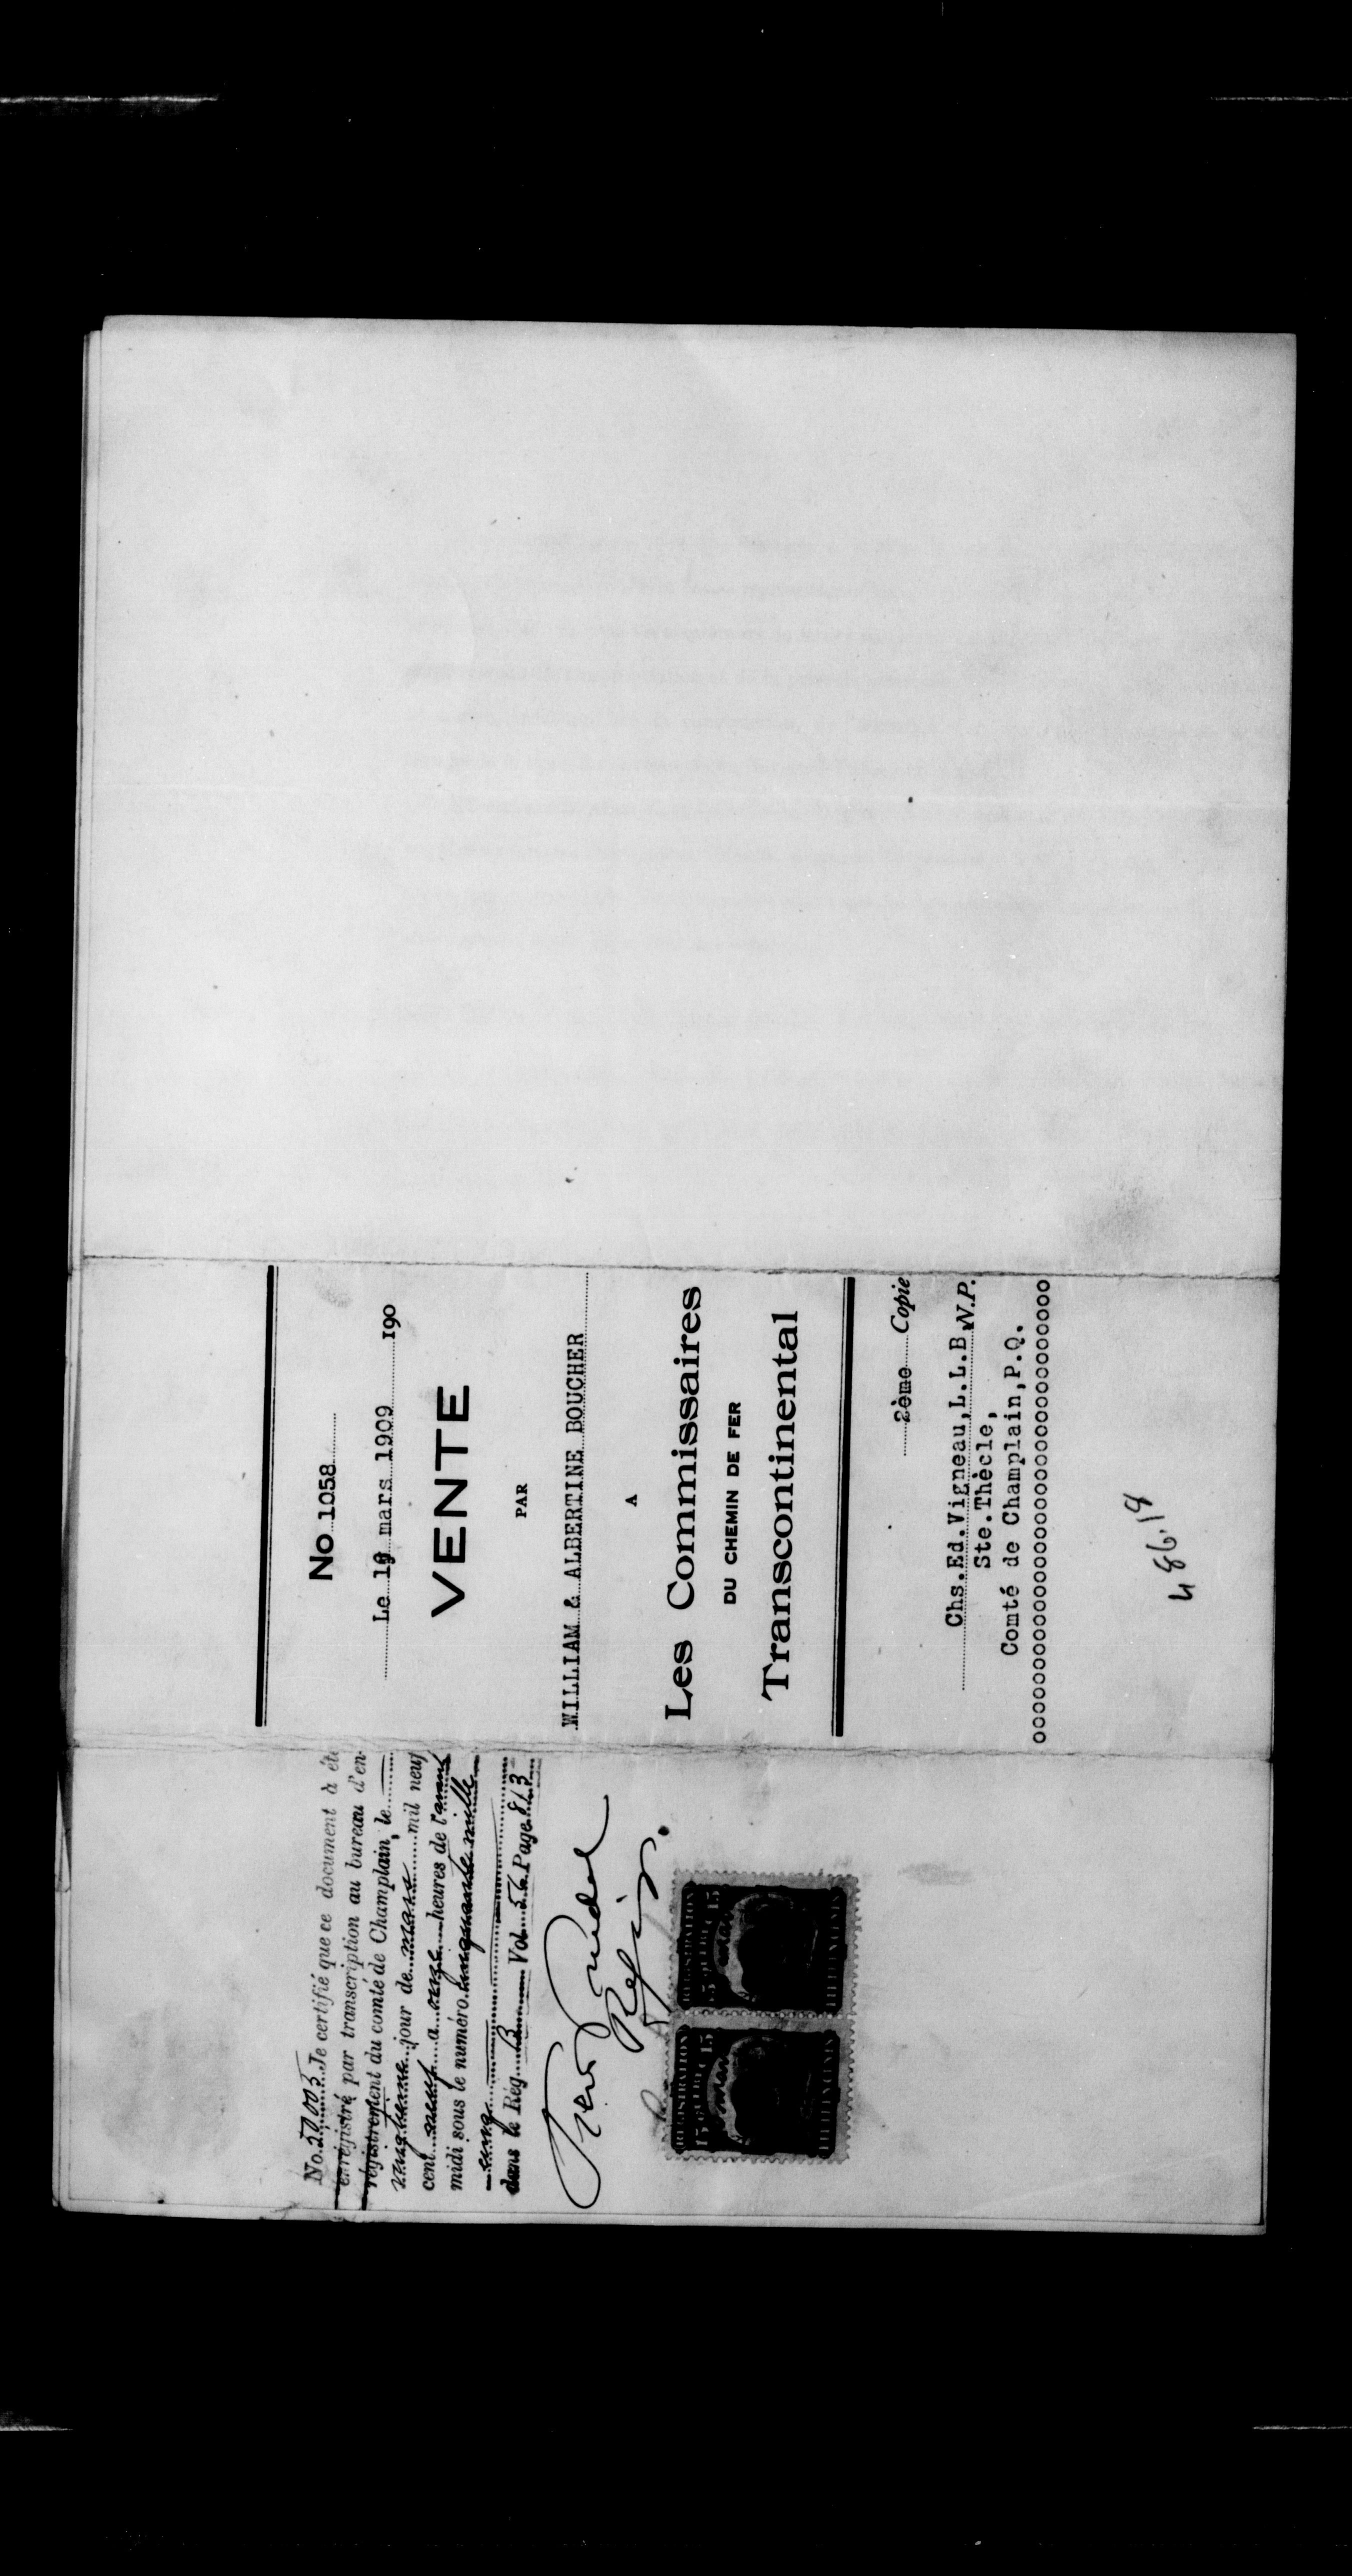 No 1058
Le 19 mars 1909 190
VENTE
PAR
WILLIAM & ALBERTINE BOUCHER
A
Les Commissaires
DU CHEMIN DE FER
Transcontinental
2ème Copie
Chs.Ed.Vigneau,L.L.B.N.P.
Ste.Thècle,
Comté de Champlain,P.Q.
oooooooooooooooooooooooooooooooooooooo
486.19
No. 50005 Je certifié que ce document à été
enrégistré par transcription au bureau d'en-
régistrement du comté de Champlain, le
vingtième jour de mars mil neuf
cent neuf a onze heures de l'avant
midi sous le numéro cinquante mille
cinq
dans le Rég. B Vol. 56 Page 813
Régis.
REGISTRATION
15 QUEBEC 15
FIFTEEN CENTS
REGISTRATION
15 QUEBEC 15
FIFTEEN CENTS